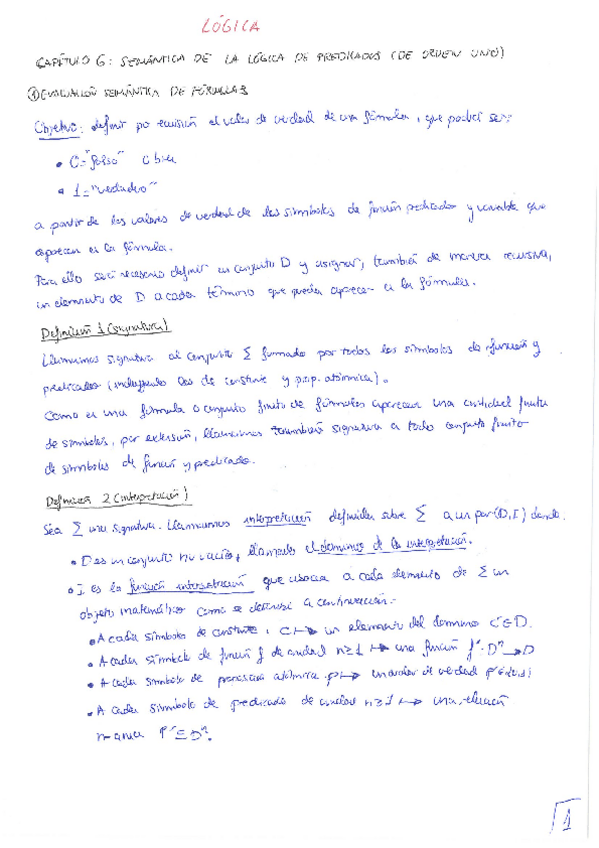 LÓGICA
CAPÍTULO 6: SEMÁNTICA DE LA LÓGICA DE PREDICADOS (DE ORDEN UNO)
① EVALUACIÓN SEMÁNTICA DE FÓRMULAS
Objetivo: definir por recursión el valor de verdad de una fórmula, que podrá ser:
• 0 = "falso" o bien
• 1 = "verdadero"
a partir de los valores de verdad de los símbolos de función predicados y variable que
aparecen en la fórmula.
Para ello será necesario definir un conjunto D y asignar, también de manera recursiva,
un elemento de D a cada término que pueda aparecer en la fórmula.
Definición 1 (signatura)
Llamamos signatura al conjunto Σ formado por todos los símbolos de función y
predicados (incluyendo los de constante y prop. atómica).
Como en una fórmula o conjunto finito de fórmulas aparecen una cantidad finita
de símbolos, por extensión, llamaremos también signatura a todo conjunto finito
de símbolos de función y predicado.
Definición 2 (interpretación)
Sea Σ una signatura. Llamamos interpretación definida sobre Σ a un par (D, I) donde:
• D es un conjunto no vacío, llamado el dominio de la interpretación.
• I es la función interpretación que asocia a cada elemento de Σ un
objeto matemático como se describe a continuación:
• A cada símbolo de constante, c ↦ un elemento del dominio c^I ∈ D.
• A cada símbolo de función f de aridad n≥1 ↦ una función f^I: D^n → D
• A cada símbolo de proposición atómica p ↦ un valor de verdad p^I ∈ {0,1}
• A cada símbolo de predicado de aridad n≥1 ↦ una relación
n-aria P^I ⊆ D^n.
1